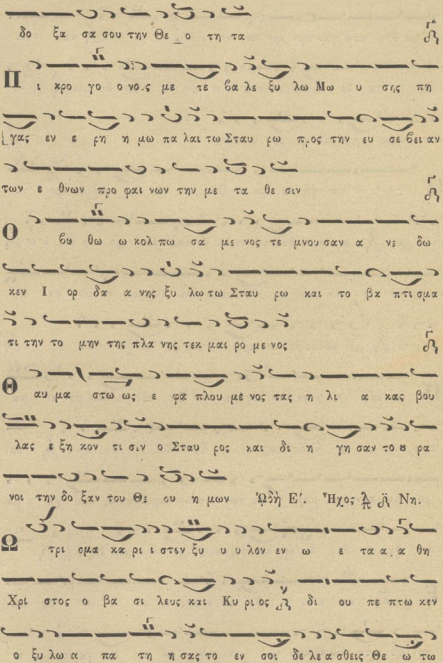 δο ξα σα σου την Θε ο τη τα
Π ι κρο γο ο νοις με τε βα λε ξυ λω Μω υ σης πη
γας εν ε ρη η μω πα λαι τω Σταυ ρω προς την ευ σε βει αν
των ε θνων προ φαι νων την με τα θε σιν
Ο βυ θω ω κολ πω σα με νος τε μνου σαν α νε δω
κεν Ι ορ δα α νης ξυ λω τω Σταυ ρω και το βα πτι σμα
τι την το μην της πλα νης τεκ μαι ρο με νος
Θ αυ μα στω ως ε φα πλου με νος τας η λι α κας βου
λας ε ξη κον τι σεν ο Σταυ ρος και δι η γη σαν το ȣ ρα
νοι την δο ξαν του Θε ου η μων Ὠδὴ Ε΄. Ἦχος Νη.
Ω τρι σμα κα ρι ι στεν ξυ υ υ λον εν ω ε τα α α θη
Χρι στος ο βα σι λευς και Κυ ρι ος δι ου πε πτω κεν
ο ξυ λω α πα τη η σας το εν σοι δε λε α σθεις Θε ω τω